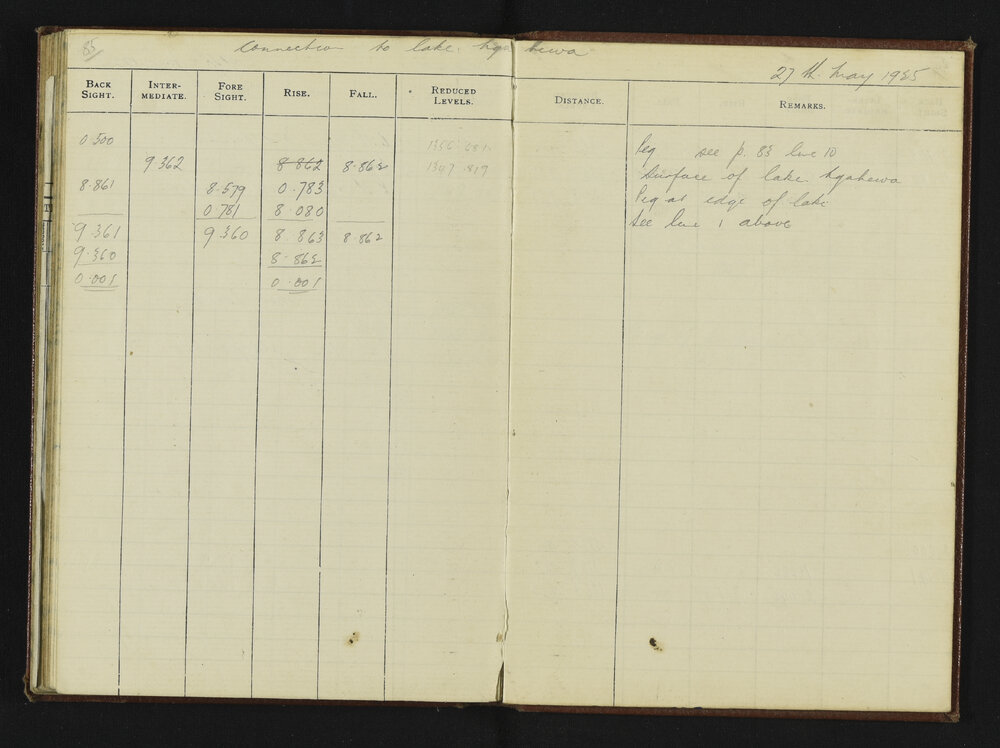 85
Connection to lake Ngahewa
27th May 1925
BACK SIGHT. INTER-MEDIATE. FORE SIGHT. RISE. FALL. REDUCED LEVELS. DISTANCE. REMARKS.
0.500 1356.681 Peg see p. 83 line 10
9.362 8.862 8.862 1347.819 Surface of lake Ngahewa
8.861 8.579 0.783 Peg at edge of lake
0.781 8.080 See line 1 above
9.361 9.360 8.863 8.862
9.360 8.862
0.001 0.001